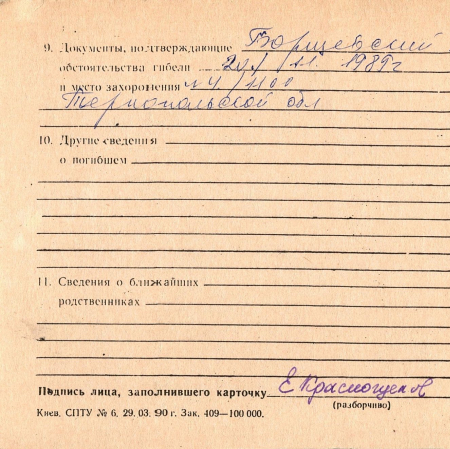 9. Документы, подтверждающие Борщевский
обстоятельства гибели 1989г
и место захоронения № 4/1100
Тернопольской обл
10. Другие сведения
о погибшем
11. Сведения о ближайших
родственниках
Подпись лица, заполнившего карточку
(разборчиво)
Киев. СПТУ № 6. 29. 03. 90 г. Зак. 409—100 000.